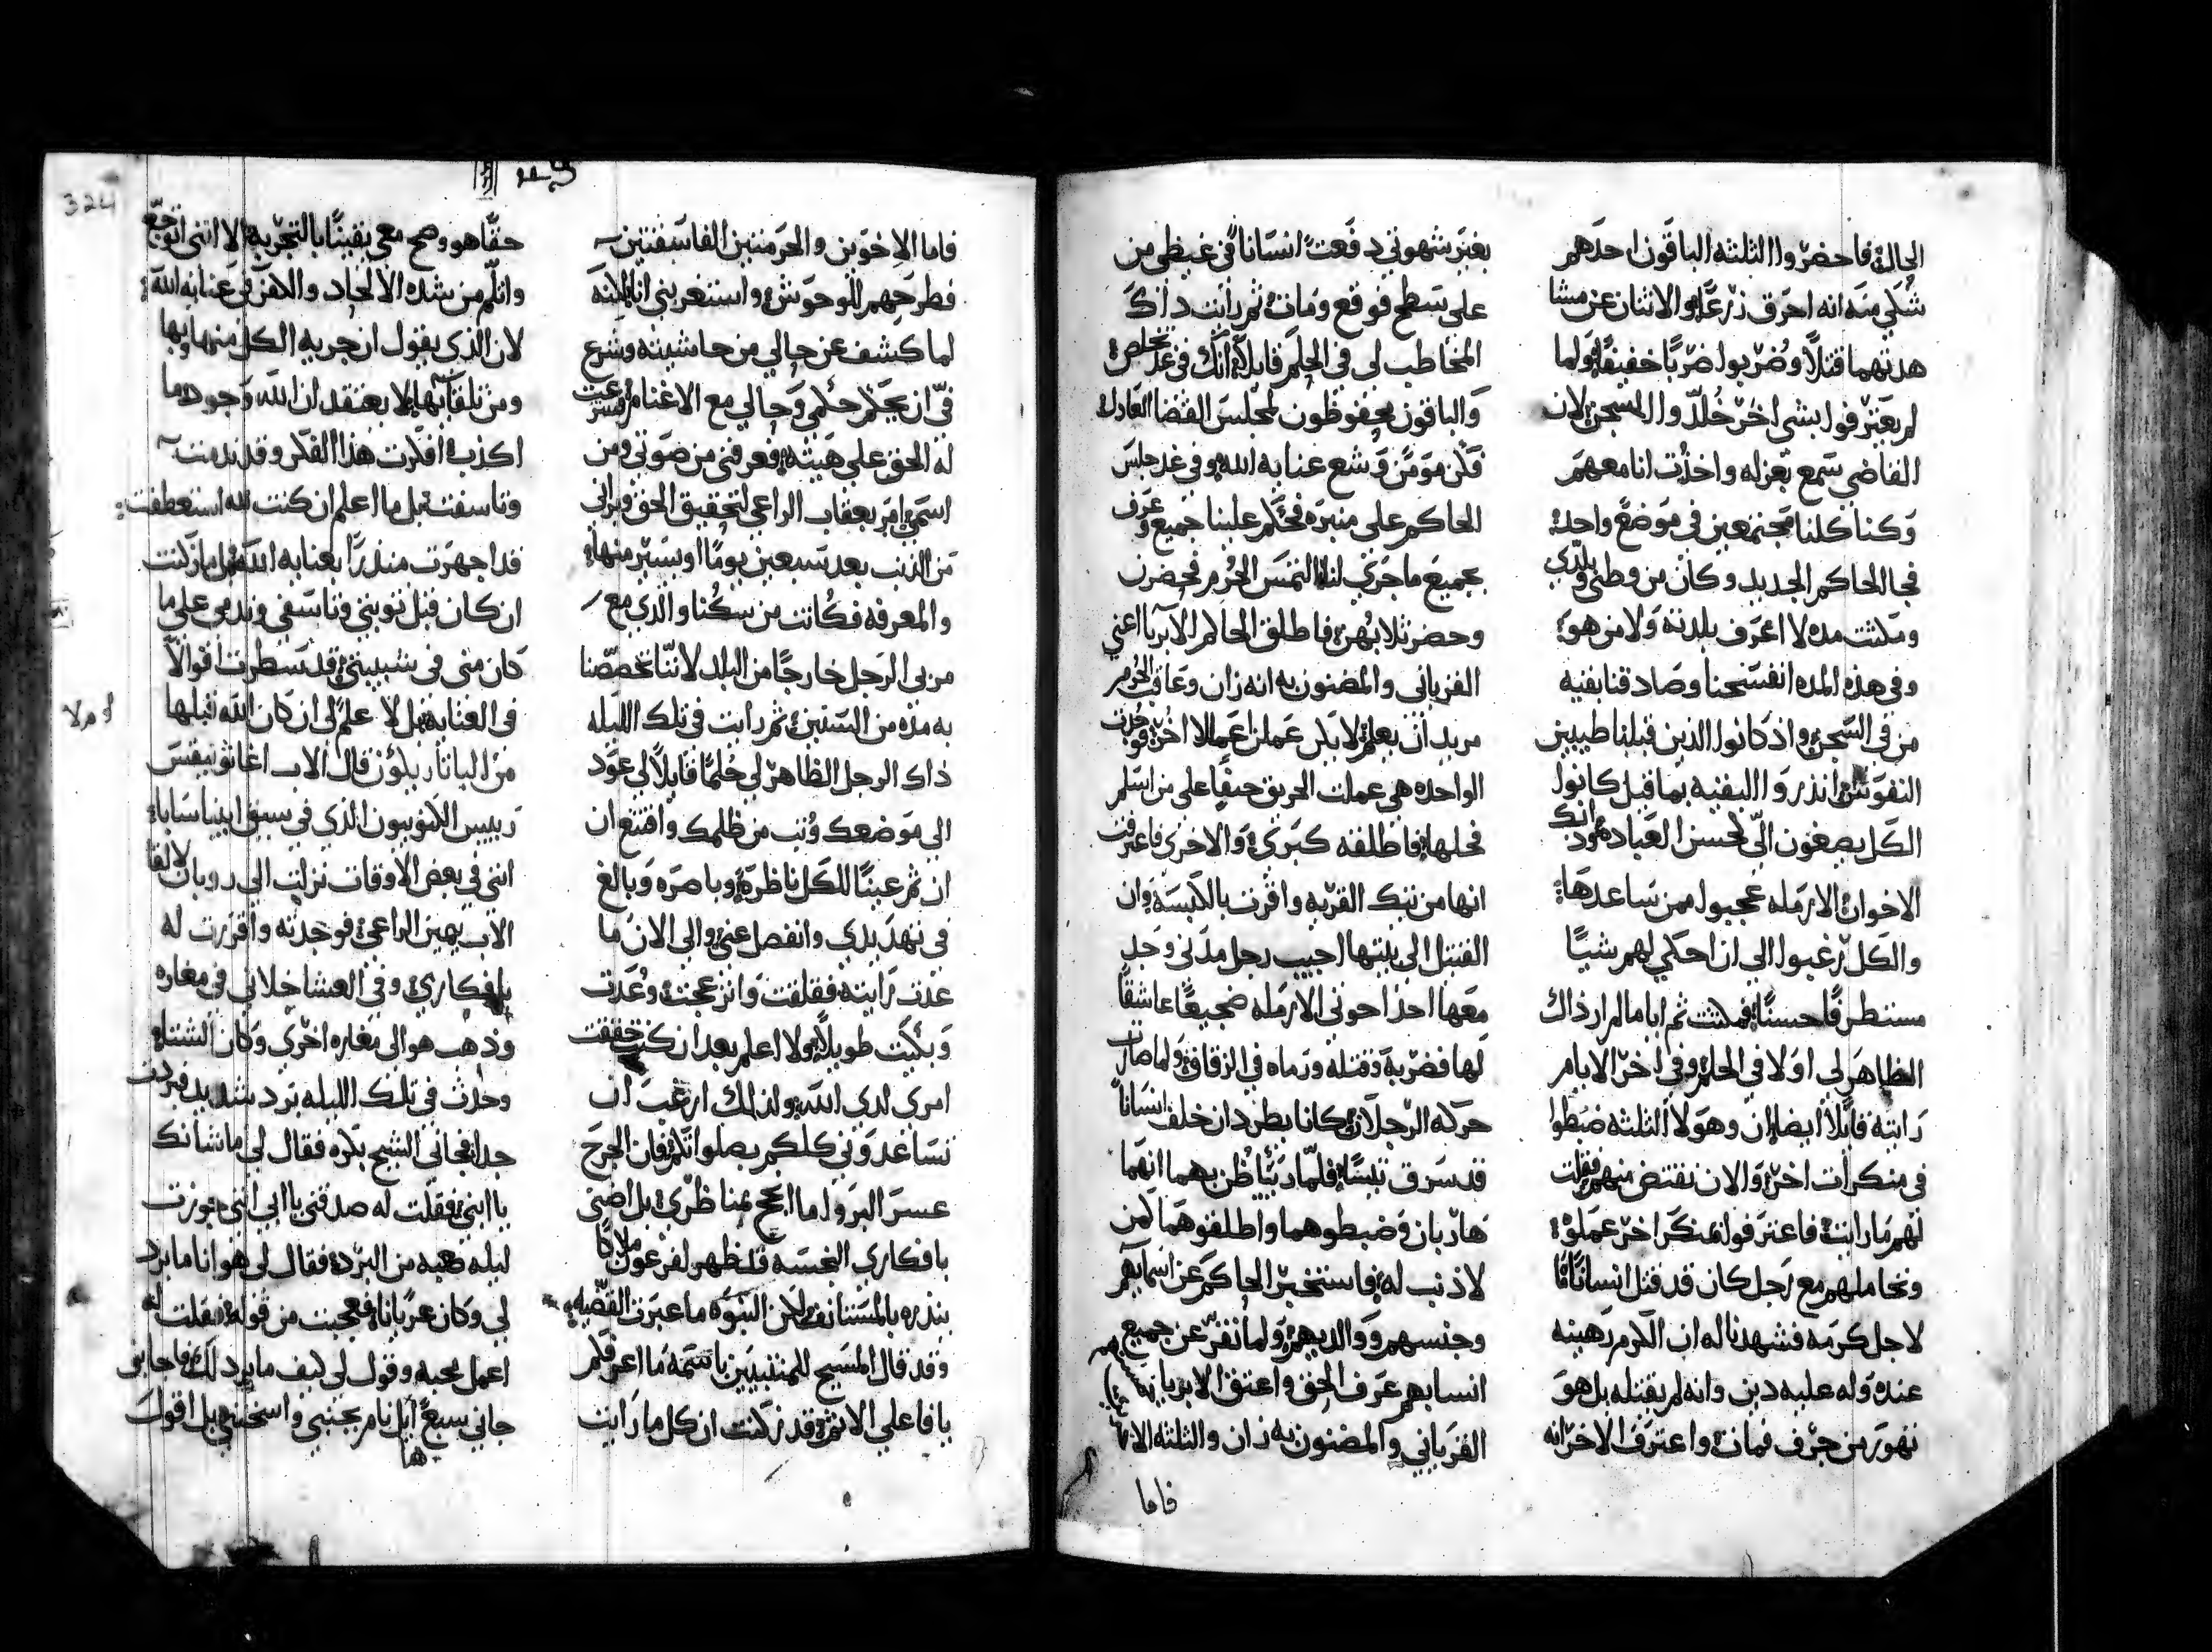 الحال فاحضروا الثلثه الباقون احدهم
شكي منه انه احرق زرعًا والاثنان عن مشا
هدتهما قتلاً وضربوا ضربًا خفيفًا ولما
لم يعترفوا بشي اخر خُلدوا السجن لان
القاضي سمع بعزله واخذت انا معهم
وكنا كلنا مجتمعين في موضع واحد
فجا الحاكم الجديد وكان من وطني وبلدي
ومكثت مده لا اعرف بلدته ولا من هو
وفي هذه المده انفسحنا وصادقنا بقيه
من في السجن واذ كانوا الذين قبلنا طيبين
النفوس انذروا البقيه بما قيل كانوا
الكل يصغون الّي لحسن العباده
الاخوان الارمله عجبوا ممن ساعدها
والكل رغبوا الي ان احكي لهم شيًا
مستطرفًا حسنًا فمكثت ثم اياما لم ار ذاك
الظاهر لي اولا في الحلم وفي اخر الايام
رايته قايلاً ايضا ان وهولا الثلثه ضبطوا
في منكرات اخر والان نقتض منهم فقلت
لهم ما رايت فاعترفوا بمنكر اخر عملوه
ونحاملهم مع رجل كان قد قتل انسانًا
لاجل كرمه فشهدنا له ان الكرم رهينه
عنده وله عليه دين وانه لم يقتله بل هو
تهور من جرف فمات واعترف الاخر انه
بغير شهوتي دفعت انسانًا في غيظي من
على سطح فوقع ومات ثم رايت داك
المخاطب لي في الحلم قايلاً انك في غد تخلص
والباقون يحفوظون لمجلس القضا العادل
فكن مومن وشع عنايه الله وفي غد جلس
الحاكم على منبره فحكم علينا جميع وعرف
بجميع ماجرى لنا التمس الجُرم فحضرت
وحضر ثلاثهن فاطلق الحاكم الابريا اعني
الغرباني والمضنون به انه زان وعاقب الجُرم
مريد ان يعلم لا يكن عملن اعمالا اخر
الواحده هي عملت الحريق حنقًا على من اسلم
فحلها فاطلقه كبرى والاخرى فاعترفت
انها من تيك القريه واقرت بالكبسه وان
القتيل الى بيتها اجيب رجل مدني وجد
معها احذ اخوتي الارمله ضجيعًا عاشقًا
لها فضربه وقتله ورماه في الزقاق ولما صارت
حركه الرجلان كانا يطردان خلف انسانًا
قد سرق تيسًا فلمّا رئيا ظن بهما انهما
هاربان فضبطوهما واطلقوهما كمن
لا ذنب له فاستخبر الحاكم عن اسمايهم
وجنسهم ووالديهم ولما نقرّ عن جميع
انسابهم عرف الحق واعتق الابريا
الغرباني والمضنون به زان والثلثه الا
فاما
فاما الاخوين والحرمتين الفاسقتين
فطرحهم للوحوش واستغربني انا لكنه
لما كشف عن حالي من حاشيته وشرع
في ان يحكم حكمي وحالي مع الاغنام فشرعت
له الحق على هيته فعرفني من صوتي ومن
اسمي امر بعقاب الراعي لتحقيق الحق وبراني
من الذنب بعد سبعين يومًا او يسير منها
والمعرفه فكانت من سكنا والدي مع
مربي الرجل خارجًا من البلد لاننا تخصّصنا
به مده من السنين ثم رايت في تلك الليله
ذاك الرجل الظاهر لي حُلمًا قايلاً لي عوّد
الي موضعك وتب من ظلمك واقتنع ان
ان ثم عينًا للكل ناظره وباصره وبالغ
في تهديدي وانفصل عني والي الان ما
عدت رايته فقلقت وانزعجت وعُدت
وبكيت طويلاً ولا اعلم بعد ان كنت حققت
امري لدي الله ولذلك ارغب ان
تساعدوني كلكم بصلواتكم فان الجرح
عسر البر ولما ابجح بمناظري بل اضني
بافكاري النجسه قد ظهر لفرعون ملاكًا
ينذره بالمستانف لكن النبوه ما عبرت القضيه
وقد قال المسيح للمتنبيين باسمه ما اعرفكم
يا فاعلي الاثم قد زكنت ان كل ما رايت
324
حقًا هو وصح معي يقينًا بالتجربه الا انني اتوجّع
واتلّم من شده الالحاد والهزو في عنايه الله
لان الذي يقول ان جربه الكل منها وبها
ومن تلقاها لا يعتقد ان الله وجود ما
اكذب افكرت هذا الفكر وقد ندمت
وتاسفت بل ما اعلم ان كنت لله استعطفت
قد اجهرت منذرًا بعنايه الله بل ما زكنت
ان كان قبل توبتي وتاسفي وندمي علي ما
كان مني في شبيبتي قد سطرت اقوالاً
في العنايه بل لا علم لي ان كان الله قبلها
من الباتاريكون قال الاب اغاثونيقس
رييس اللنوبيون الذي في سبق ابينا سابا
انني في بعض الاوقات نزلت الي روبان لالقا
الاب بمين الراعي فوجدته واقررت له
بافكاري وفي العشا خلاني في مغاره
وذهب هو الى مغاره اخري وكان الشتاء
وحدث في تلك الليله برد شديد فبردت
جدا فجاني الشيخ بكره فقال لي ما شانك
يا ابني فقلت له صدقني يا ابي انني جوزت
ليله صعبه من البرد فقال لي هو انا ما برد
لي وكان عريانًا فعجبت من قوله فقلت له
اعمل محبه وقول لي كيف ما برد لك فاجابني
جاني سبعًا ان نام بجنبي واسخنني بل اقول